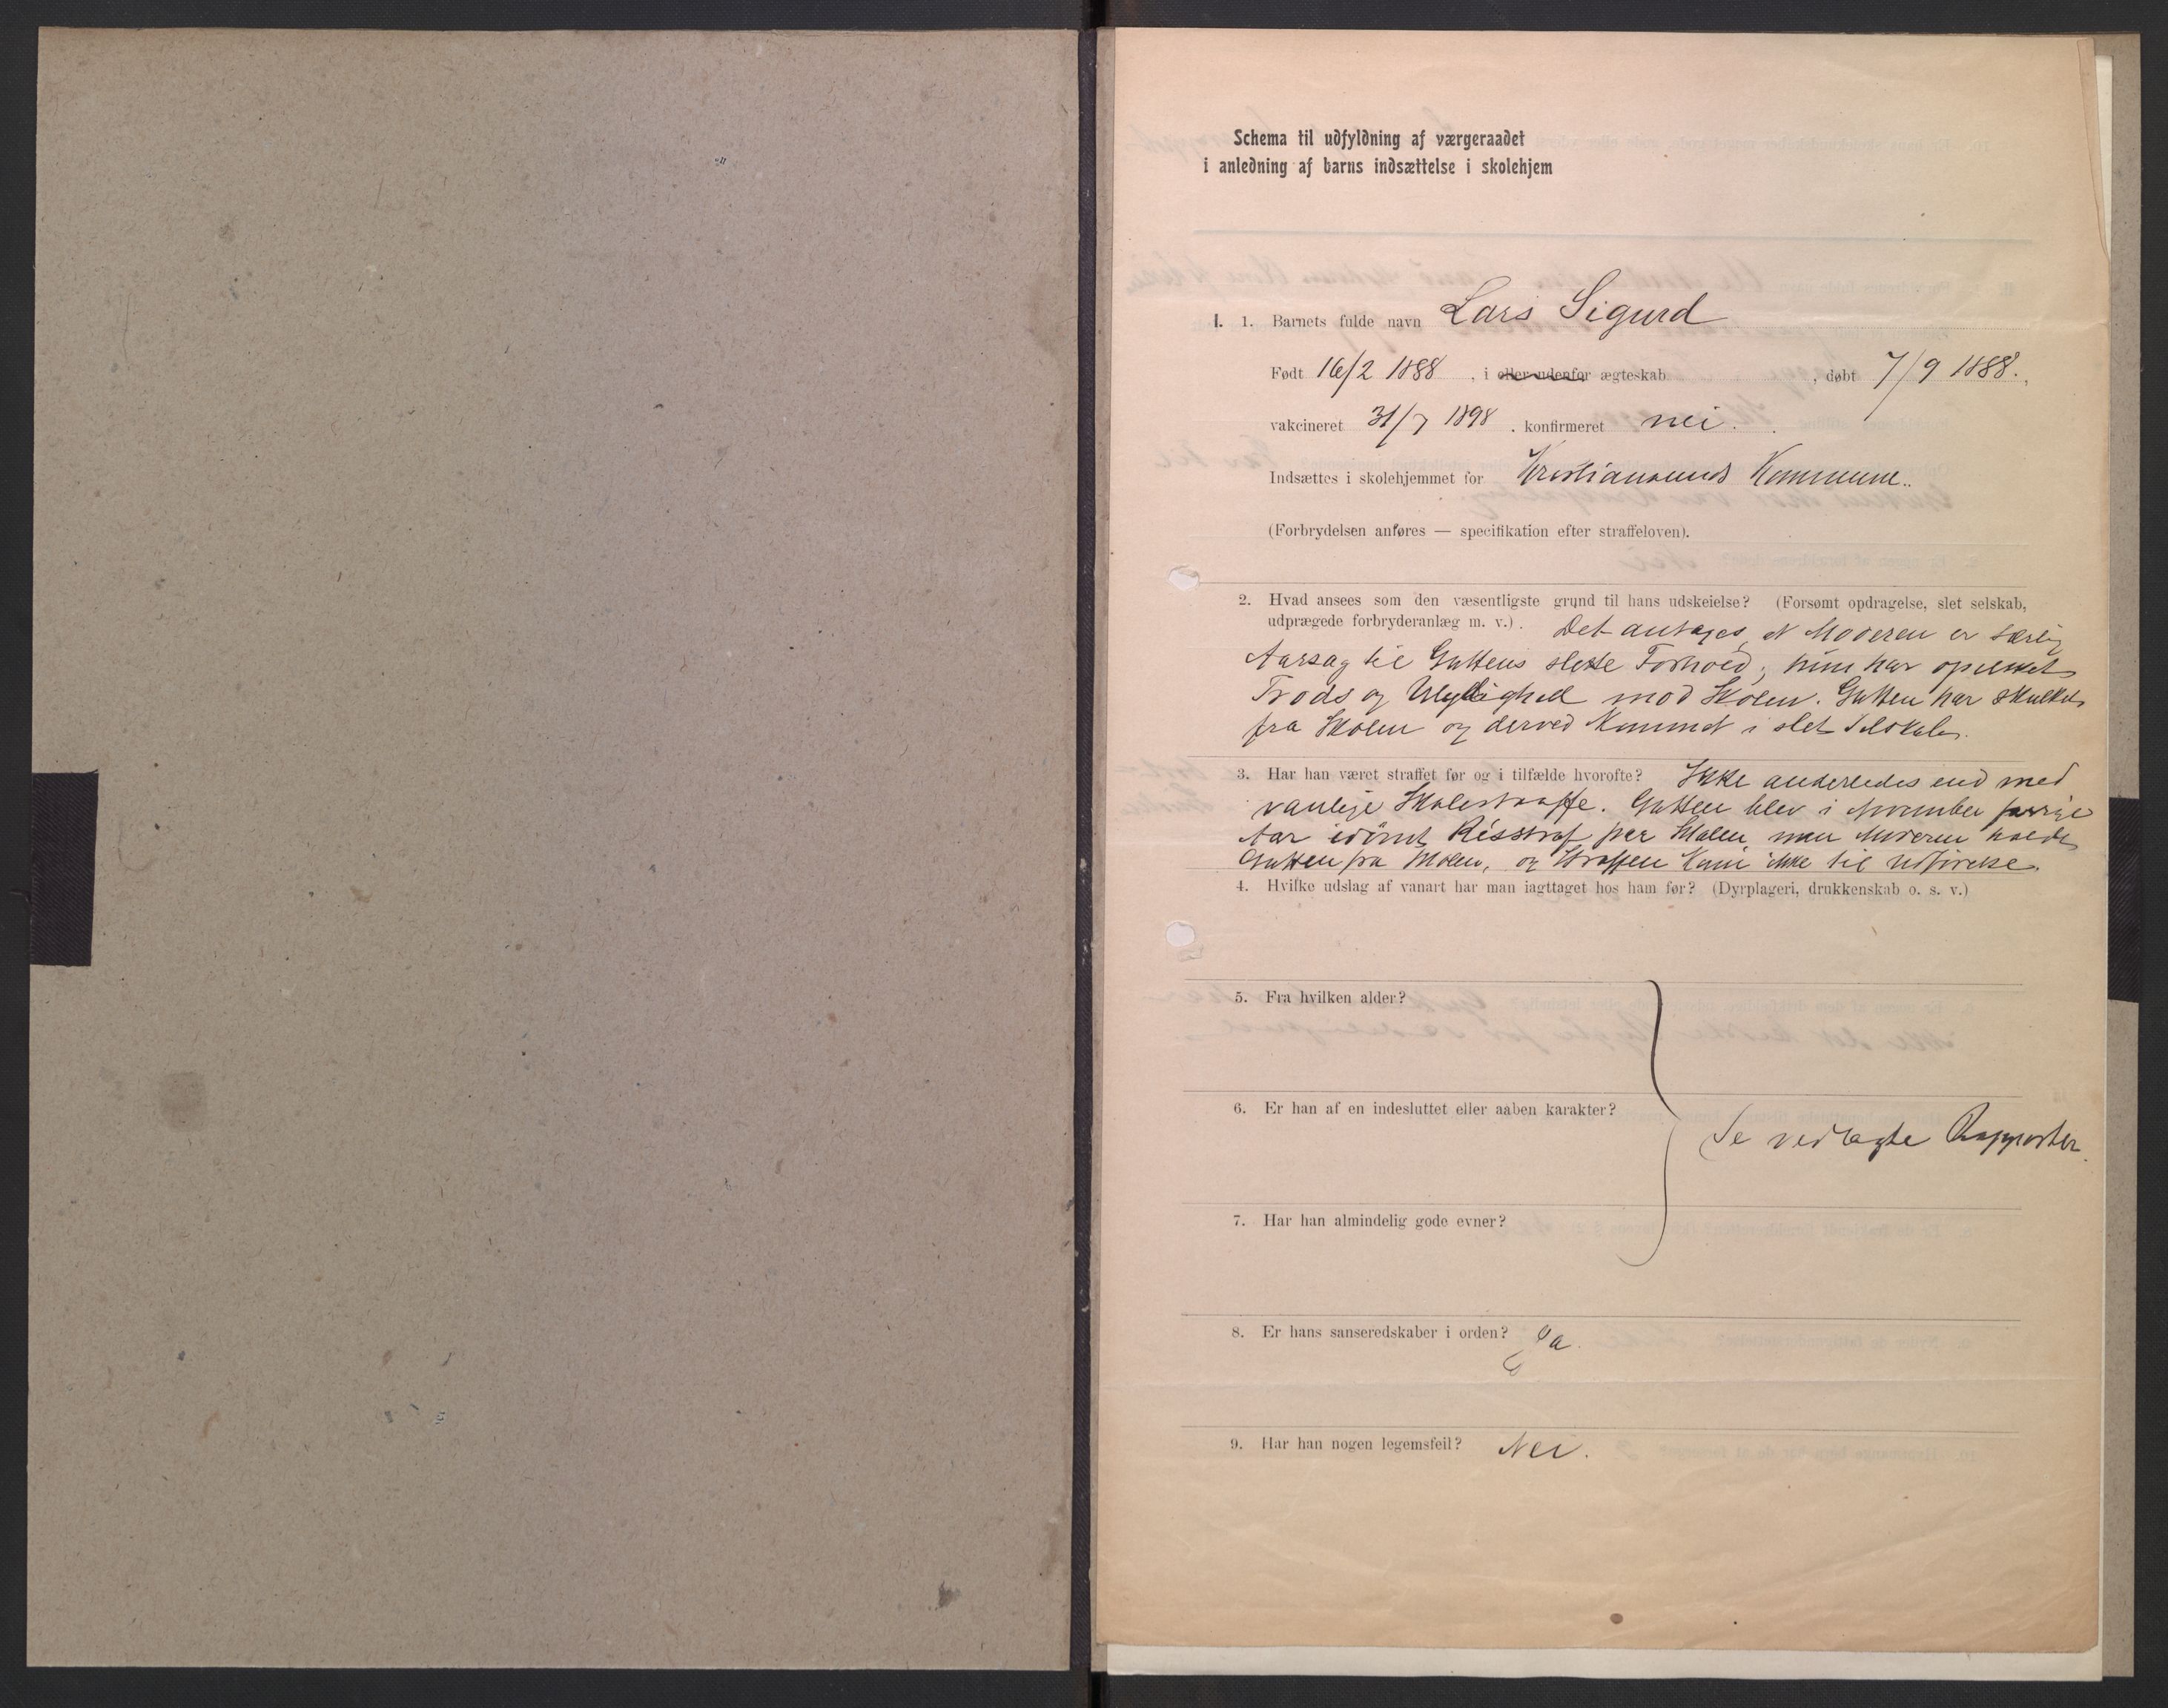 Schema til udfyldning af værgeraadet
i anledning af barns indsættelse i skolehjem
I. 1. Barnets fulde navn Lars Sigurd
Født 16/2 1888, i eller udenfor ægteskab, døbt 7/9 1888.
vakcineret 31/7 1898. konfirmeret nei.
Indsættes i skolehjemmet for Kristiansunds Kommune.
(Forbrydelsen anføres — specifikation efter straffeloven).
2. Hvad ansees som den væsentligste grund til hans udskeielse? (Forsømt opdragelse, slet selskab,
udprægede forbryderanlæg m. v.). Det antages, at Moderen er særlig
Aarsag til Guttens slette Forhold; hun har opelsket
Trods og Ulydighed mod Skolen. Gutten har skulket
fra Skolen og derved kommet i slet Selskab.
3. Har han været straffet før og i tilfælde hvorofte? Ikke anderledes end med
vanlige Skolestraffe. Gutten blev i November forrige
Aar idømt Risstraf paa Skolen, men Moderen holdt
Gutten fra Skolen, og Straffen kom ikke til Udførelse.
4. Hvilke udslag af vanart har man iagttaget hos ham før? (Dyrplageri, drukkenskab o. s. v.)
5. Fra hvilken alder?
6. Er han af en indesluttet eller aaben karakter?
Se vedlagte Rapporter.
7. Har han almindelig gode evner?
8. Er hans sanseredskaber i orden? Ja.
9. Har han nogen legemsfeil? Nei.